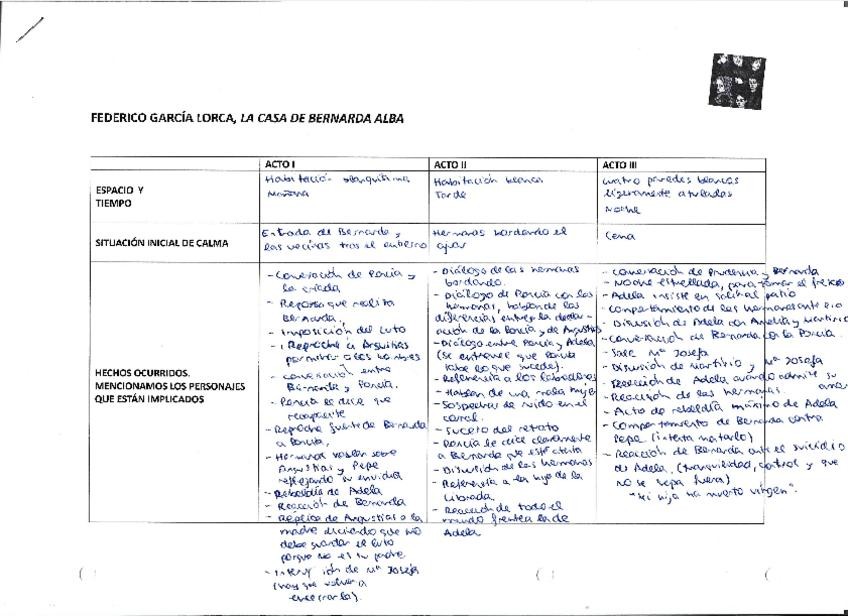 FEDERICO GARCÍA LORCA, LA CASA DE BERNARDA ALBA
ACTO I
ACTO II
ACTO III
ESPACIO Y
TIEMPO
Habitación blanquísima
Mañana
Habitación blanca
Tarde
cuatro paredes blancas
ligeramente azuladas
Noche
SITUACIÓN INICIAL DE CALMA
Entrada de Bernarda y
las vecinas tras el entierro
Hermanas bordando el
ajuar
Cena
HECHOS OCURRIDOS.
MENCIONAMOS LOS PERSONAJES
QUE ESTÁN IMPLICADOS
- Conversación de Poncia y
la criada
- Reposo que realiza
Bernarda.
- Imposición del luto
- Reproche a Angustias
por mirar a los hombres
- conversación entre
Bernarda y Poncia.
- Poncia le dice que
recapacite
- Reproche fuerte de Bernarda
a Poncia.
- Hermanas hablan sobre
Angustias y Pepe
reflejando su envidia
- Rebeldía de Adela
- Reacción de Bernarda
- Réplica de Angustias a la
madre diciendo que no
debe guardar el luto
porque no es su padre
- ión de Mª Josefa
(hay que volver a
encerrarla).
- Diálogo de las hermanas
bordando.
- Diálogo de Poncia con las
hermanas, hablan de las
diferencias entre la declar-
ación de la Poncia y de Angustias
- Diálogo entre Poncia y Adela
(se entrevé que Poncia
sabe lo que sucede).
- Referencia a los labradores
- Hablan de una mala mujer
- Sospechas de ruido en el
corral.
- Suceso del retrato
- Poncia le dice claramente
a Bernarda que esté atenta
- Discusión de las hermanas
- Referencia a la hija de la
Librada.
- Reacción de todo el
mundo frente a la de
Adela
- conversación de Prudencia y Bernarda
- Noche estrellada, para tomar el fresco
- Adela insiste en salir al patio
- comportamiento de las hermanas ante
- Discusión de Adela con Amelia y Martirio
- Conversación de Bernarda con la Poncia.
- Sale Mª Josefa
- Discusión de Martirio y Mª Josefa
- Reacción de Adela cuando admite su
amor
- Reacción de las hermanas
- Acto de rebeldía máximo de Adela
- Comportamiento de Bernarda contra
Pepe (intenta matarlo)
- Reacción de Bernarda ante el suicidio
de Adela, (tranquilidad, control y que
no se sepa fuera)
"Mi hija ha muerto virgen".